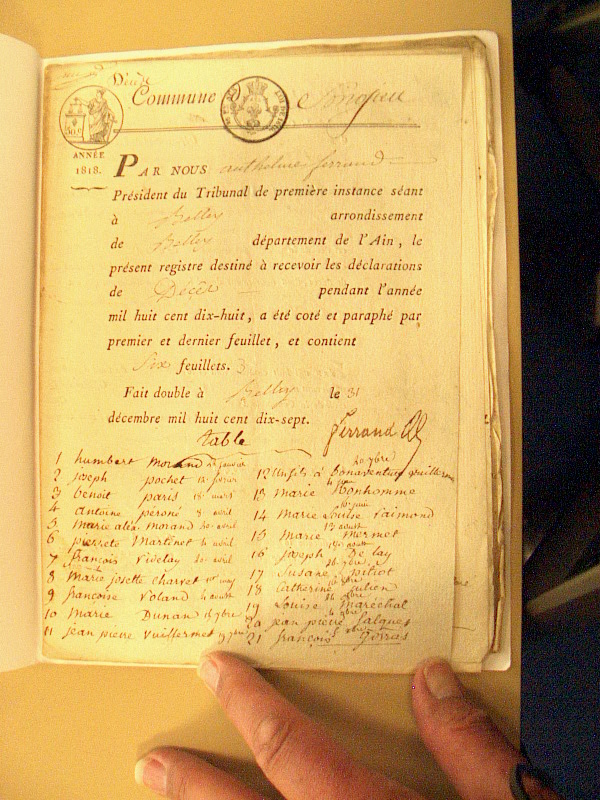 Décès
Commune
ANNÉE
1818.
PAR NOUS anthelme ferrand
Président du Tribunal de première instance séant
à Belley arrondissement
de Belley département de l'Ain, le
présent registre destiné à recevoir les déclarations
de Décès pendant l'année
mil huit cent dix-huit, a été coté et paraphé par
premier et dernier feuillet, et contient
Six feuillets.
Fait double à Belley le 31
décembre mil huit cent dix-sept.
table Ferrand
1 humbert morand
2 joseph pochet
3 benoit paris
4 antoine péroné 8 avril
5 marie alex. morand 20 avril
6 pierrete Martinet avril
7 françois Videlay avril
8 Marie josette charvet may
9 françoise Voland août
10 Marie Dunan 9bre
11 jean pierre vuillermet 9bre
12 un fils à Bonaventure vuillerme
13 Marie Bonhomme
14 Marie Louise Raimond
15 Marie Mermet
16 joseph De lay
17 Susane pitiot
18 Catherine jullien
19 Louise Maréchal
20 jean pierre jalques
21 françois